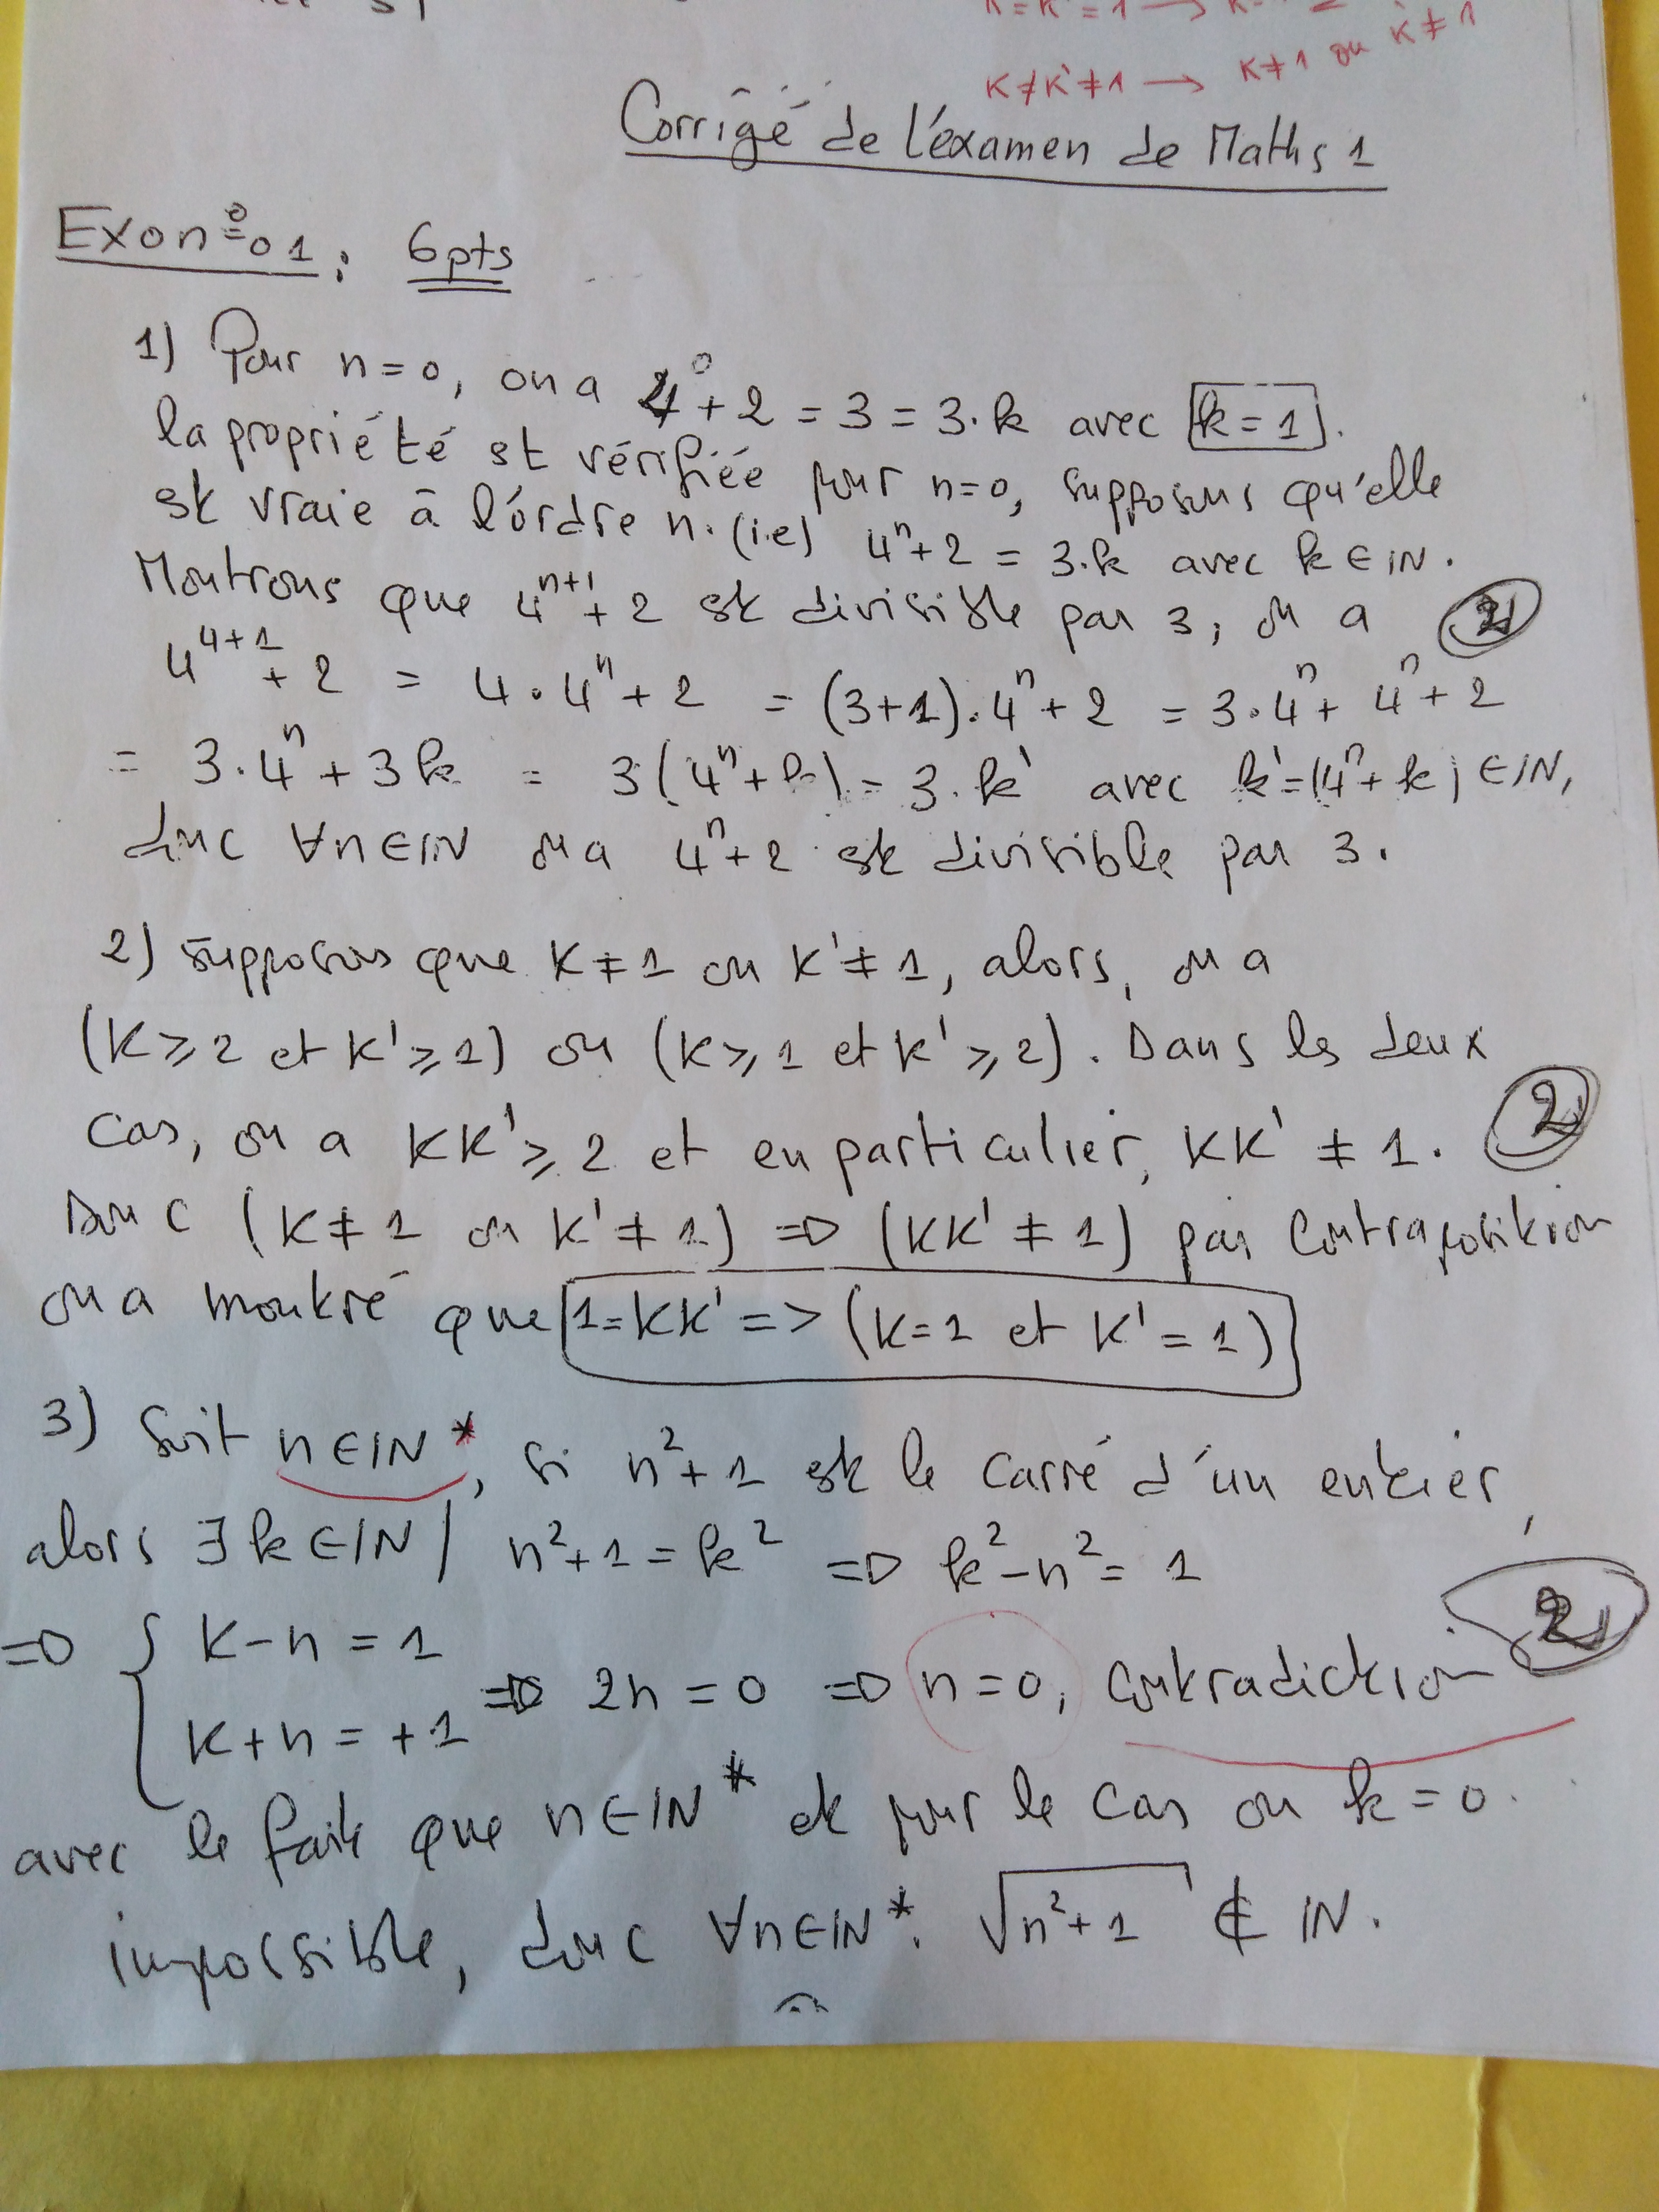 K≠K'≠1 → K≠1 ou K≠1
Corrigé de l'éxamen de Maths 1
Exo n°01 : 6pts
1) Pour n=0, on a 4⁰+2 = 3 = 3.k avec k=1.
la propriété est vérifiée pour n=0, supposons qu'elle
est vraie à l'ordre n. (i.e) 4ⁿ+2 = 3.k avec k∈IN.
Montrons que 4ⁿ⁺¹+2 est divisible par 3, on a 2
4⁴⁺¹+2 = 4.4ⁿ+2 = (3+1).4ⁿ+2 = 3.4ⁿ+4ⁿ+2
= 3.4ⁿ+3k = 3(4ⁿ+k) = 3.k' avec k'=(4ⁿ+k)∈IN,
donc ∀n∈IN on a 4ⁿ+2 est divisible par 3.
2) supposons que K≠1 ou K'≠1, alors, on a
(K⩾2 et K'⩾1) ou (K⩾1 et K'⩾2). Dans les deux
cas, on a KK'⩾2 et en particulier, KK'≠1. 2
Donc (K≠1 ou K'≠1) ⇒ (KK'≠1) par Contraposition
on a montré que 1=KK' => (K=1 et K'=1)
3) Soit n∈IN*, si n²+1 est le carré d'un entier,
alors ∃k∈IN / n²+1=k² ⇒ k²-n²=1
⇒ { K-n = 1
K+n = +1 ⇒ 2n = 0 ⇒ n=0, contradiction 2
avec le fait que n∈IN* et pour le cas ou k=0.
impossible, donc ∀n∈IN*. √n²+1 ∉ IN.